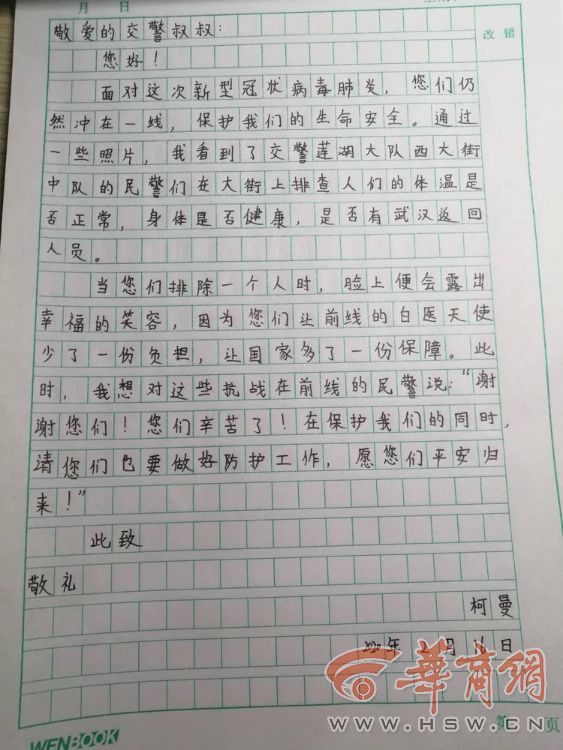 月 日
改错
敬爱的交警叔叔：
您好！
面对这次新型冠状病毒肺炎，您们仍
然冲在一线，保护我们的生命安全。通过
一些照片，我看到了交警莲湖大队西大街
中队的民警们在大街上排查人们的体温是
否正常，身体是否健康，是否有武汉返回
人员。
当您们排除一个人时，脸上便会露出
幸福的笑容，因为您们让前线的白医天使
少了一份负担，让国家多了一份保障。此
时，我想对这些抗战在前线的民警说：“谢
谢您们！您们辛苦了！在保护我们的同时，
请您们也要做好防护工作，愿您们平安归
来！”
此致
敬礼
柯曼
2020年2月16日
華商網
WWW.HSW.CN
第 页
WENBOOK